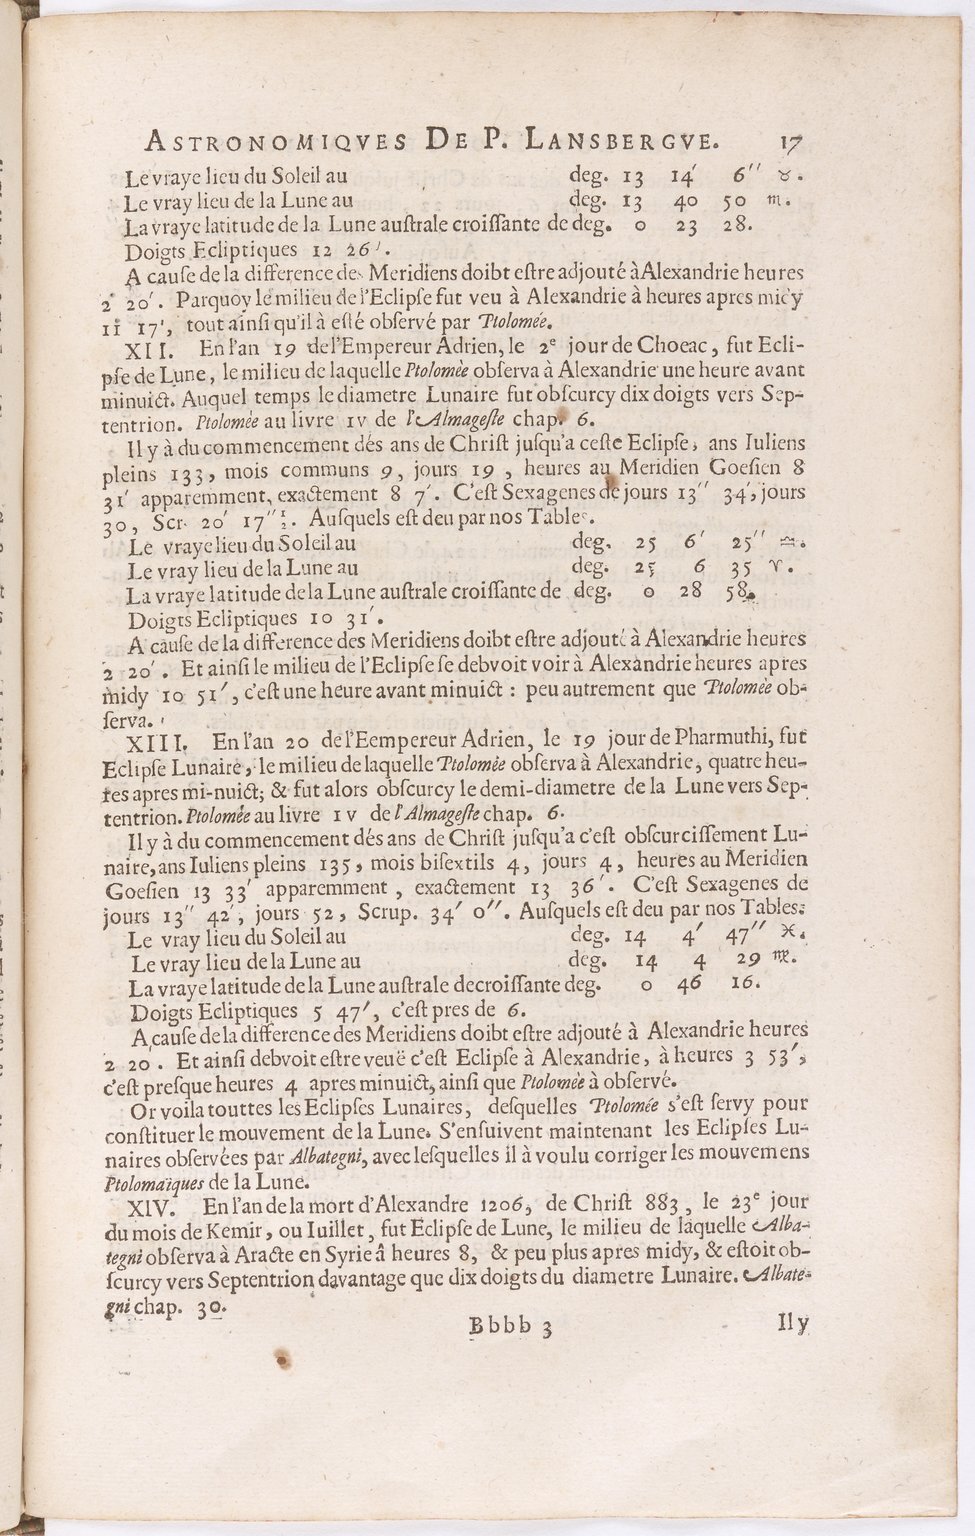 ASTRONOMIQVES DE P. LANSBERGVE. 17
Le vraye lieu du Soleil au deg. 13 14′ 6″ ♉.
Le vray lieu de la Lune au deg. 13 40 50 ♏.
La vraye latitude de la Lune auſtrale croiſſante de deg. 0 23 28.
Doigts Ecliptiques 12 26′.
A cauſe de la difference des Meridiens doibt eſtre adjouté à Alexandrie heures
2 20′. Parquoy le milieu de l'Eclipſe fut veu à Alexandrie à heures apres midy
11 17′, tout ainſi qu'il à eſté obſervé par Ptolomée.
XII. En l'an 19 de l'Empereur Adrien, le 2e jour de Choeac, fut Ecli-
pſe de Lune, le milieu de laquelle Ptolomée obſerva à Alexandrie une heure avant
minuict. Auquel temps le diametre Lunaire fut obſcurcy dix doigts vers Sep-
tentrion. Ptolomée au livre IV de l'Almageſte chap. 6.
Il y à du commencement dés ans de Chriſt juſqu'a ceſte Eclipſe, ans Iuliens
pleins 133, mois communs 9, jours 19, heures au Meridien Goeſien 8
31′ apparemment, exactement 8 7′. C'eſt Sexagenes de jours 13″ 34′, jours
30, Scr. 20′ 17″½. Auſquels eſt deu par nos Tables.
Le vraye lieu du Soleil au deg. 25 6′ 25″ ♎.
Le vray lieu de la Lune au deg. 25 6 35 ♈.
La vraye latitude de la Lune auſtrale croiſſante de deg. 0 28 58.
Doigts Ecliptiques 10 31′.
A cauſe de la difference des Meridiens doibt eſtre adjouté à Alexandrie heures
2 20′. Et ainſi le milieu de l'Eclipſe ſe debvoit voir à Alexandrie heures apres
midy 10 51′, c'eſt une heure avant minuict : peu autrement que Ptolomée ob-
ſerva.
XIII. En l'an 20 de l'Eempereur Adrien, le 19 jour de Pharmuthi, fut
Eclipſe Lunaire, le milieu de laquelle Ptolomée obſerva à Alexandrie, quatre heu-
res apres mi-nuict; & fut alors obſcurcy le demi-diametre de la Lune vers Sep-
tentrion. Ptolomée au livre IV de l'Almageſte chap. 6.
Il y à du commencement dés ans de Chriſt juſqu'a c'eſt obſcurciſſement Lu-
naire, ans Iuliens pleins 135, mois biſextils 4, jours 4, heures au Meridien
Goeſien 13 33′ apparemment, exactement 13 36′. C'eſt Sexagenes de
jours 13″ 42′, jours 52, Scrup. 34′ 0″. Auſquels eſt deu par nos Tables:
Le vray lieu du Soleil au deg. 14 4′ 47″ ♓.
Le vray lieu de la Lune au deg. 14 4 29 ♍.
La vraye latitude de la Lune auſtrale decroiſſante deg. 0 46 16.
Doigts Ecliptiques 5 47′, c'eſt pres de 6.
A cauſe de la difference des Meridiens doibt eſtre adjouté à Alexandrie heures
2 20′. Et ainſi debvoit eſtre veuë c'eſt Eclipſe à Alexandrie, à heures 3 53′,
c'eſt preſque heures 4 apres minuict, ainſi que Ptolomée à obſervé.
Or voila touttes les Eclipſes Lunaires, deſquelles Ptolomée s'eſt ſervy pour
conſtituer le mouvement de la Lune. S'enſuivent maintenant les Eclipſes Lu-
naires obſervées par Albategni, avec leſquelles il à voulu corriger les mouvemens
Ptolomaïques de la Lune.
XIV. En l'an de la mort d'Alexandre 1206, de Chriſt 883, le 23e jour
du mois de Kemir, ou Iuillet, fut Eclipſe de Lune, le milieu de laquelle Alba-
tegni obſerva à Aracte en Syrie â heures 8, & peu plus apres midy, & eſtoit ob-
ſcurcy vers Septentrion davantage que dix doigts du diametre Lunaire. Albate-
gni chap. 30.
Bbbb 3 Il y